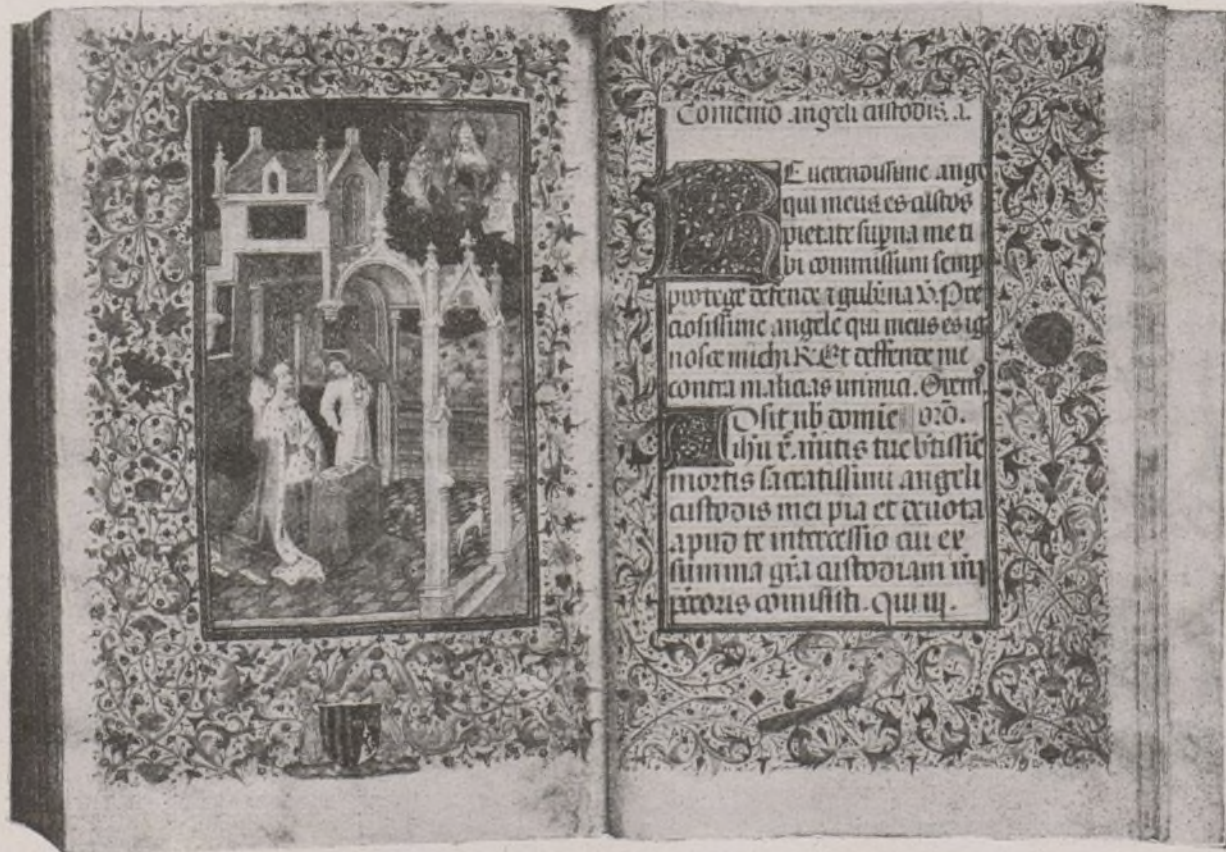 angeli custodis. a.
Reuerendissime ange
qui meus es custos
pietate supna me ti
bi commissum semp
protege defende ⁊ gubna V. Pre
ciosissime angele qui meus es ig
nosce michi R. Et deffende me
contra
Adsit nb domie oro.
ihu
mortis sacratissimi angeli
custodis mei pia et deuota
apud te intercessio cui ex
summa gra custodiam
pctoris comisisti. Qui